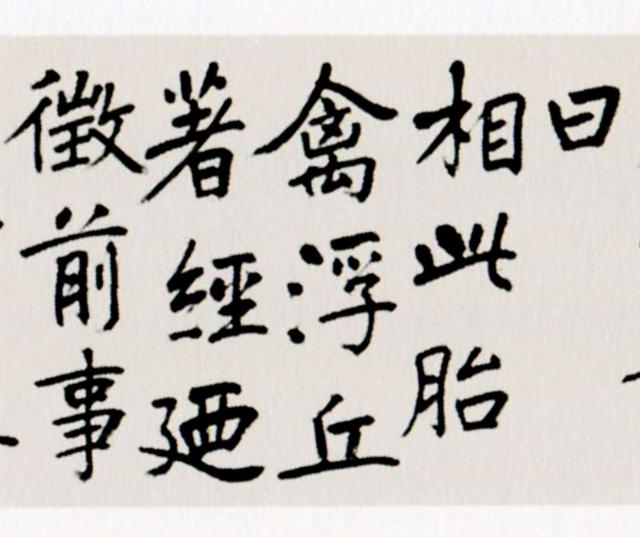 曰
相此胎
禽浮丘
著經廼
徵前事